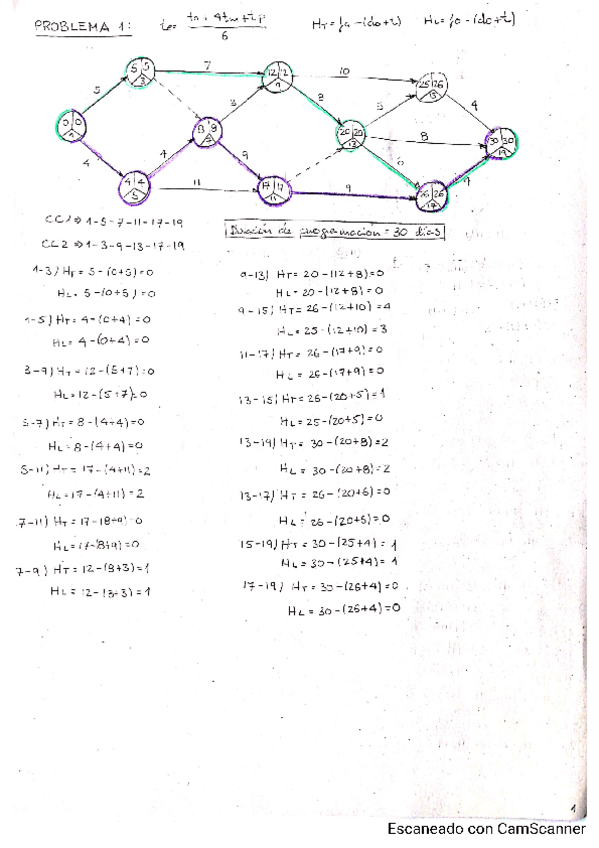 PROBLEMA 1:
6
5 5
3
7
12 12
9
10
25 26
15
5
3
8
5
4
0 0
1
8 8
7
20 20
13
8
30 30
19
4
4
9
6
4
4 4
5
11
17 17
11
9
26 26
17
CC1 ⇒ 1-5-7-11-17-19
CC2 ⇒ 1-3-9-13-17-19
Duración de programación = 30 días
1-3) HT = 5-(0+5)=0
HL = 5-(0+5)=0
1-5) HT = 4-(0+4)=0
HL = 4-(0+4)=0
3-9) HT = 12-(5+7)=0
HL = 12-(5+7)=0
5-7) HT = 8-(4+4)=0
HL = 8-(4+4)=0
5-11) HT = 17-(4+11)=2
HL = 17-(4+11)=2
7-11) HT = 17-(8+9)=0
HL = 17-(8+9)=0
7-9) HT = 12-(8+3)=1
HL = 12-(8+3)=1
9-13) HT = 20-(12+8)=0
HL = 20-(12+8)=0
9-15) HT = 26-(12+10)=4
HL = 25-(12+10)=3
11-17) HT = 26-(17+9)=0
HL = 26-(17+9)=0
13-15) HT = 26-(20+5)=1
HL = 25-(20+5)=0
13-19) HT = 30-(20+8)=2
HL = 30-(20+8)=2
13-17) HT = 26-(20+6)=0
HL = 26-(20+6)=0
15-19) HT = 30-(25+4)=1
HL = 30-(25+4)=1
17-19) HT = 30-(26+4)=0
HL = 30-(26+4)=0
1
Escaneado con CamScanner